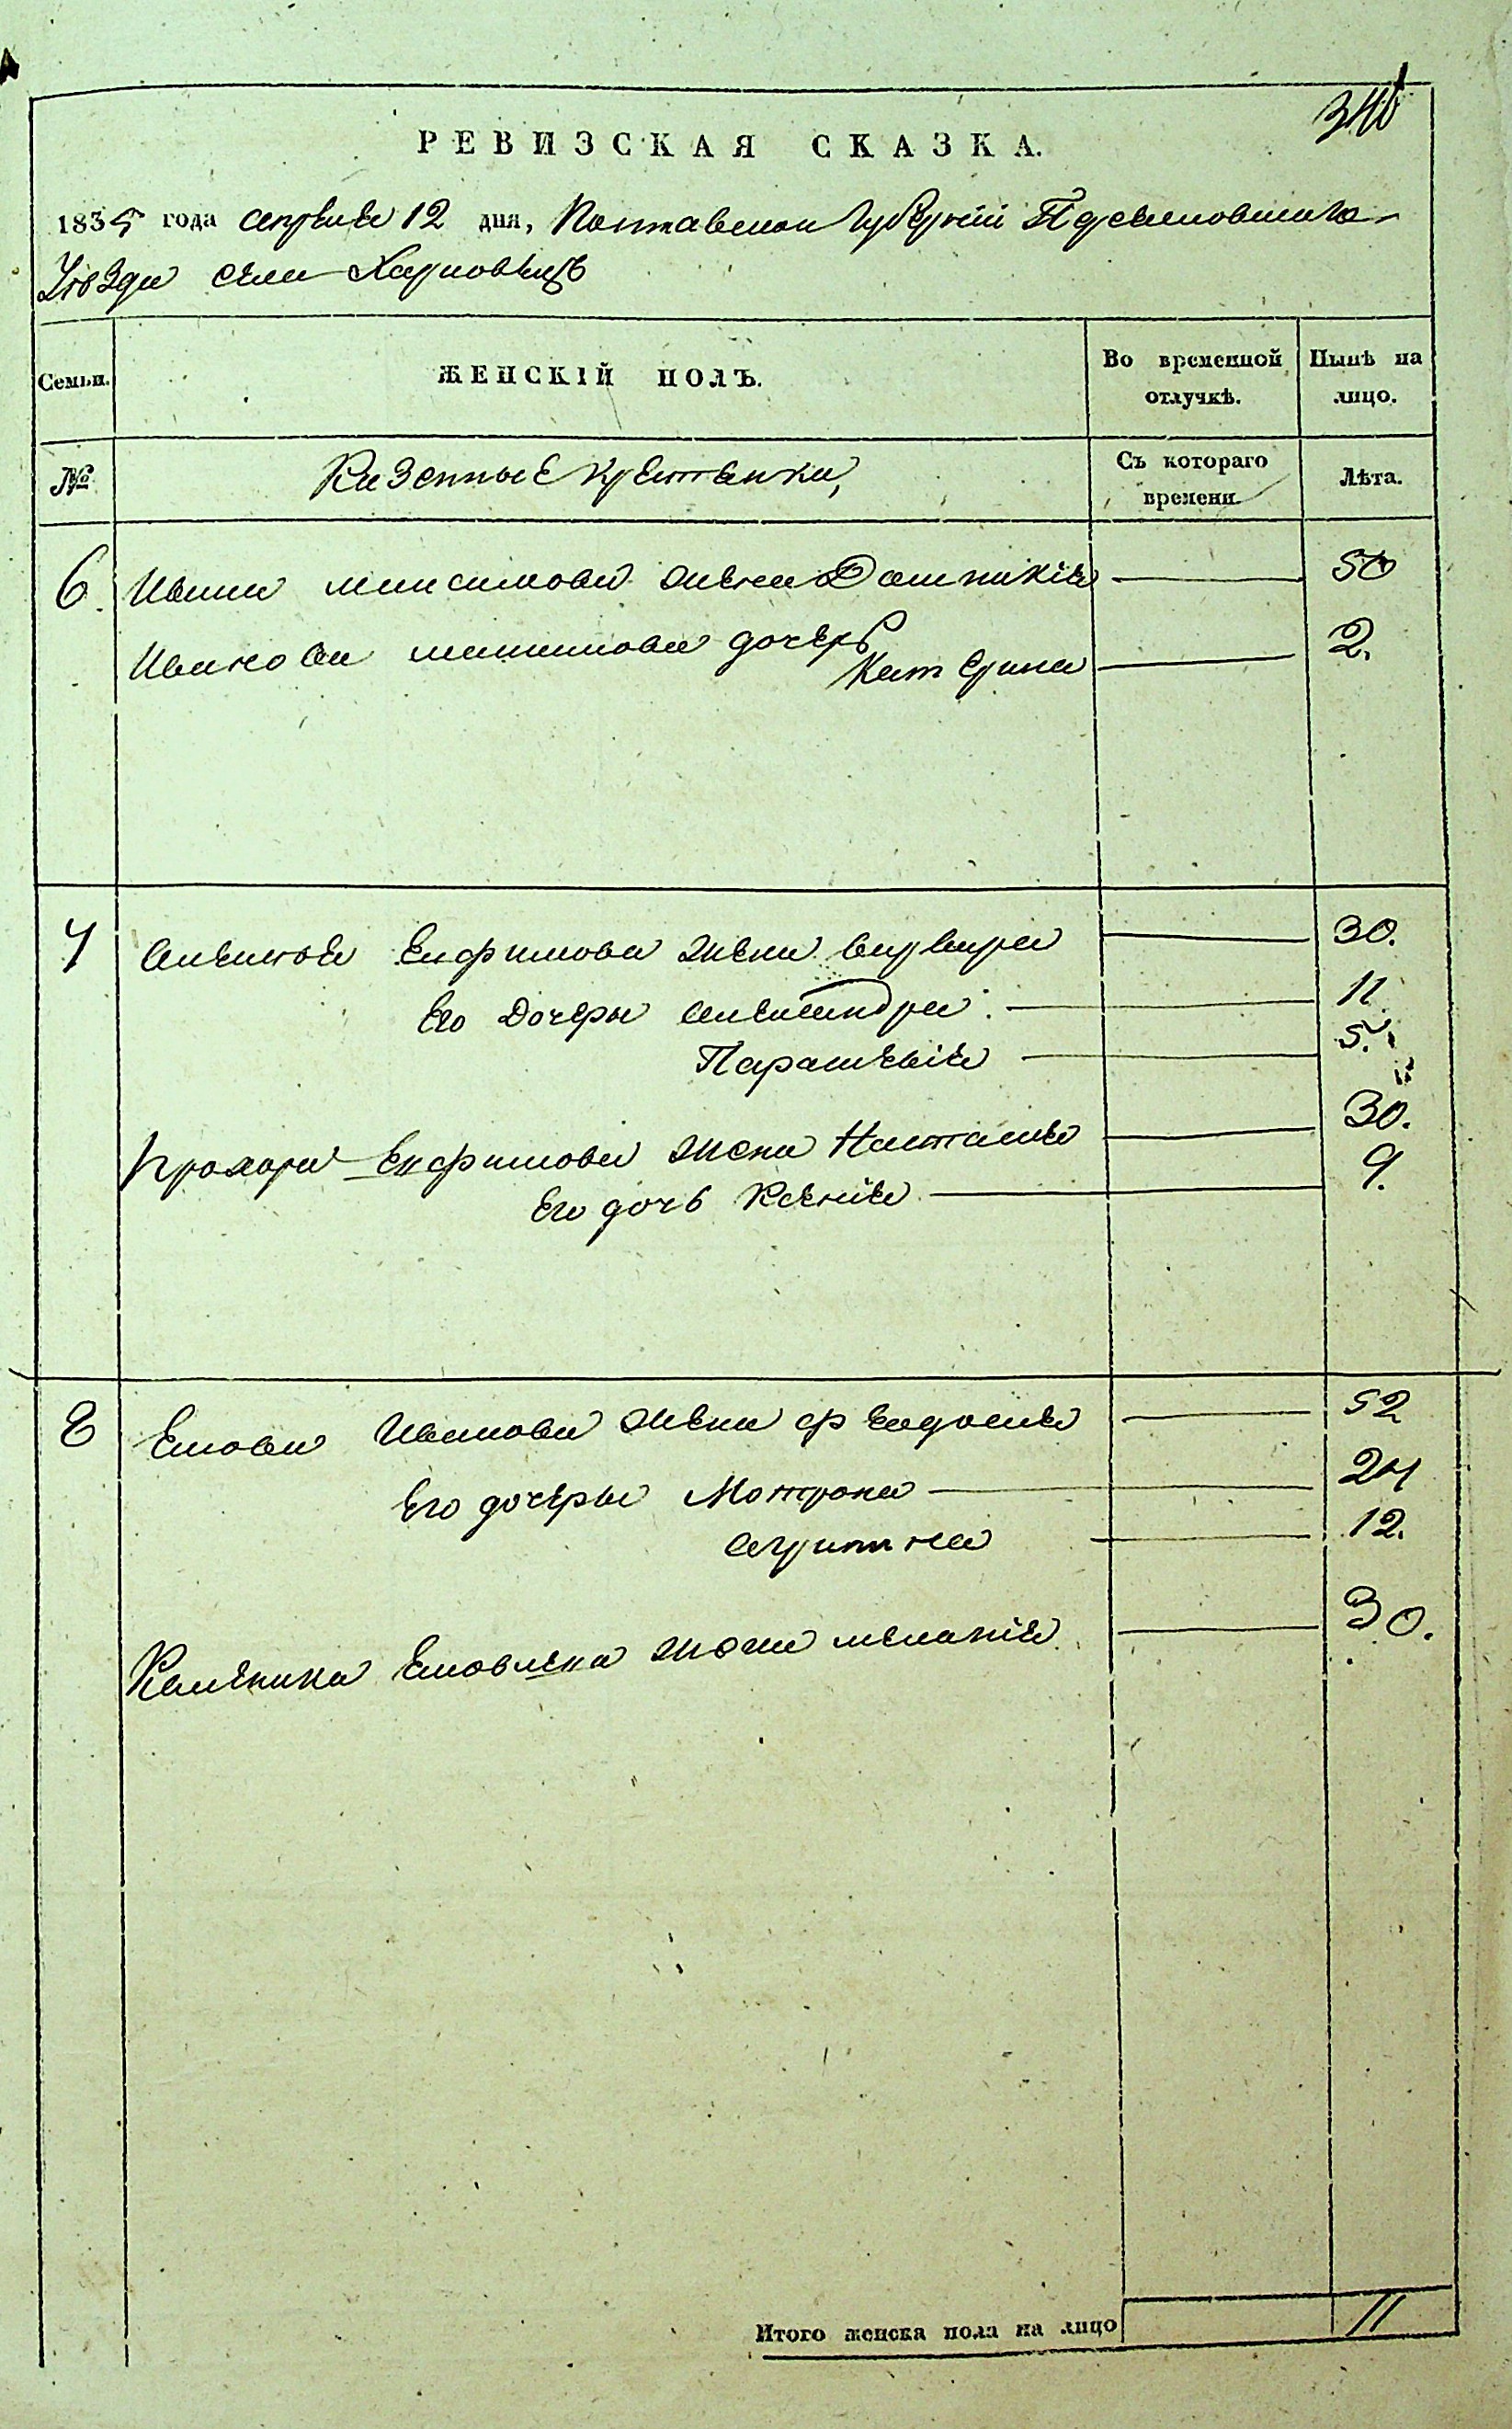 346
РЕВИЗСКАЯ СКАЗКА.
1835 года апреля 12 дня, Полтавской Губернии Переясловского
Уезда села Харковец
Семьи. ЖЕНСКІЙ ПОЛЪ. Во временной отлучкѣ. Нынѣ на лицо.
№ Казенные крестянки, Съ котораго времени Лѣта.
6. Ивана максимова жена Домникія 50
Иванова дочерь
Катерина 2.
7 Алексея Ефимова жена варвара 30.
Его Дочеры александра 11
Параскевія 5.
Прохора Ефимова жена Настасия 30.
Его дочь Ксенія 9.
8 Якова Иванова жена феодосия 52
Его дочеры Мотрона 24
12.
Каленика жена меланія 30.
Итого женска пола на лицо 11